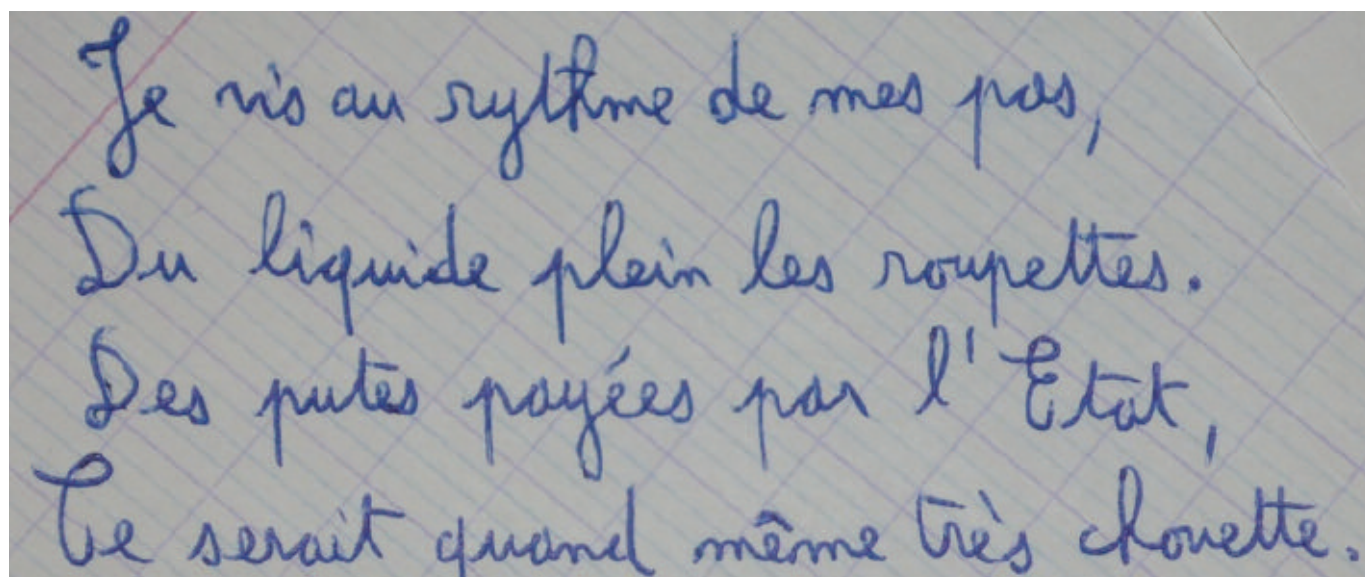 Je vis au rythme de mes pas,
Du liquide plein les roupettes.
Des putes payées par l'Etat,
Ce serait quand même très chouette.